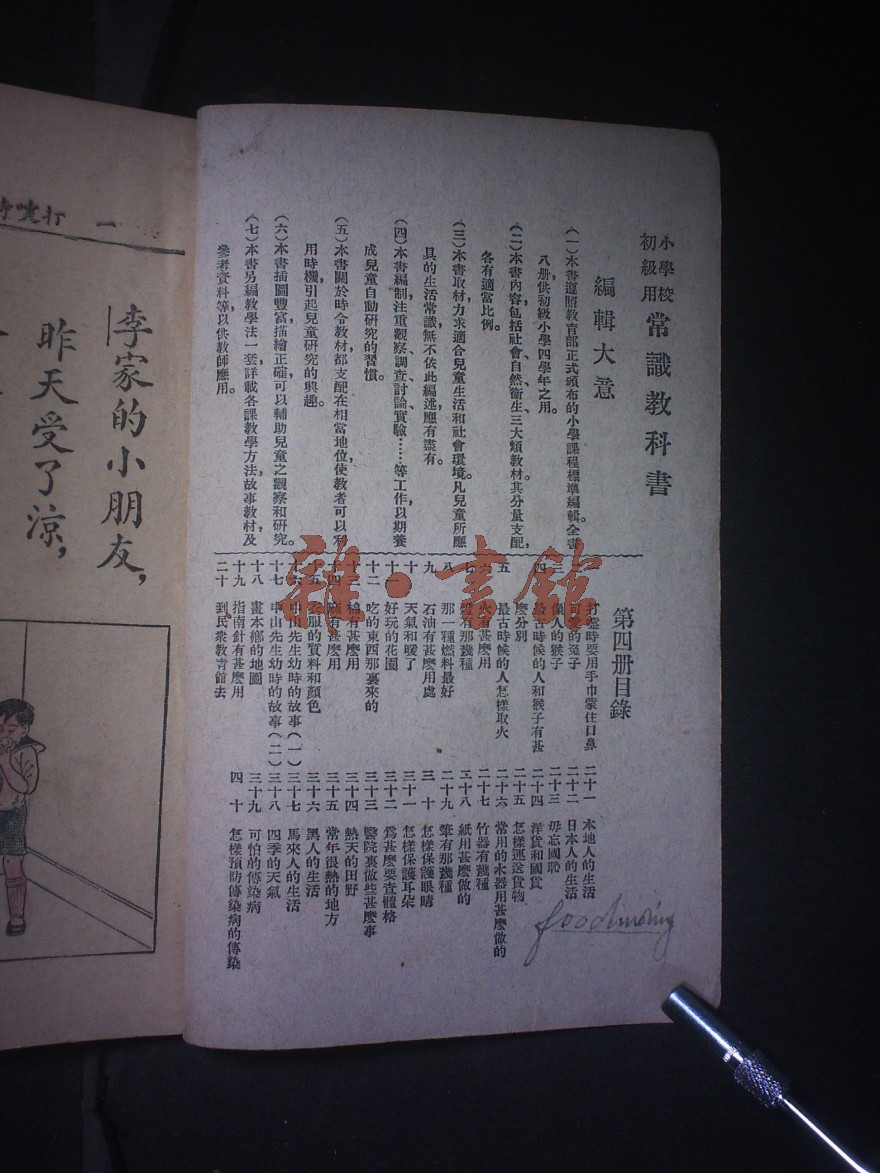 小學校
初級用
常識教科書
編輯大意
(一)本書遵照教育部正式頒布的小學課程標準編輯。全書
八册，供初級小學四學年之用。
(二)本書內容包括社會、自然、衞生、三大類教材。其分量支配，
各有適當比例。
(三)本書取材，力求適合兒童生活和社會環境。凡兒童所應
具的生活常識，無不依此編述，應有盡有。
(四)本書編制，注重觀察、調查、討論、實驗……等工作，以期養
成兒童自動研究的習慣。
(五)本書關於時令教材，都支配在相當地位，使教者可以利
用時機，引起兒童研究的興趣。
(六)本書插圖豐富，描繪正確，可以輔助兒童之觀察和研究。
(七)本書另編教學法一套，詳載各課教學方法，故事教材及
參考資料等，以供教師應用。
第四册目錄
打嚏時要用手巾蒙住口鼻
的兔子
人的猴子
四 最古時候的人和猴子有甚
麼分別
五 最古時候的人怎樣取火
六 火有甚麼用
七 有那幾種
八 那一種燃料最好
九 石油有甚麼用處
十 天氣和暖了
十一 好玩的花園
十二 吃的東西那裏來的
十三 棉有甚麼用
十四 有甚麼用
十五 衣服的質料和顏色
十六 中山先生幼時的故事(一)
十七 中山先生幼時的故事(二)
十八 畫本鄉的地圖
十九 指南針有甚麼用
二十 到民衆教育館去
二十一 本地人的生活
二十二 日本人的生活
二十三 毋忘國恥
二十四 洋貨和國貨
二十五 怎樣運送貨物
二十六 常用的木器用甚麼做的
二十七 竹器有幾種
二十八 紙用甚麼做的
二十九 筆有那幾種
三十 怎樣保護眼睛
三十一 怎樣保護耳朵
三十二 爲甚麼要查體格
三十三 醫院裏做些甚麼事
三十四 熱天的田野
三十五 常年很熱的地方
三十六 黑人的生活
三十七 馬來人的生活
三十八 四季的天氣
三十九 可怕的傳染病
四十 怎樣預防傳染病的傳染
雜·書館
一 打嚏時
李家的小朋友，
昨天受了涼，